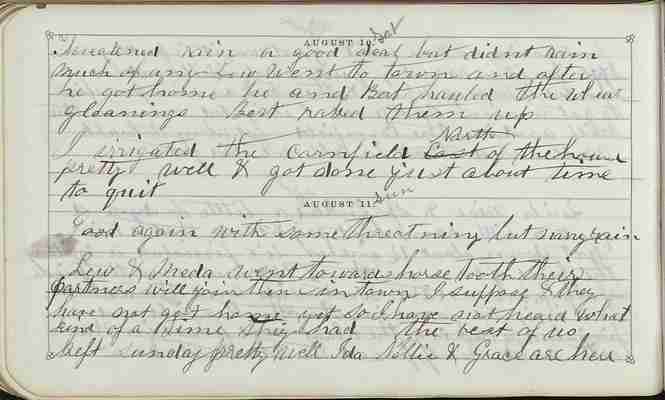 AUGUST 10. Sat
threatened rain a good deal but didnt rain
much of any Lew went to town and after
he got home he and Bert hauled the wheat
gleanings Bert raked them up
North
I irrigated the cornfield East of the house
pretty well & got done just about time
to quit
AUGUST 11. Sun
Good again with some threatning but nary rain
Lew & Meda went toward horse tooth their
partners will join them in town I suppose & they
have not got home yet so I have not heard what
kind of a time they had the best of us
left Sunday pretty well Ida Nellie & Grace are here